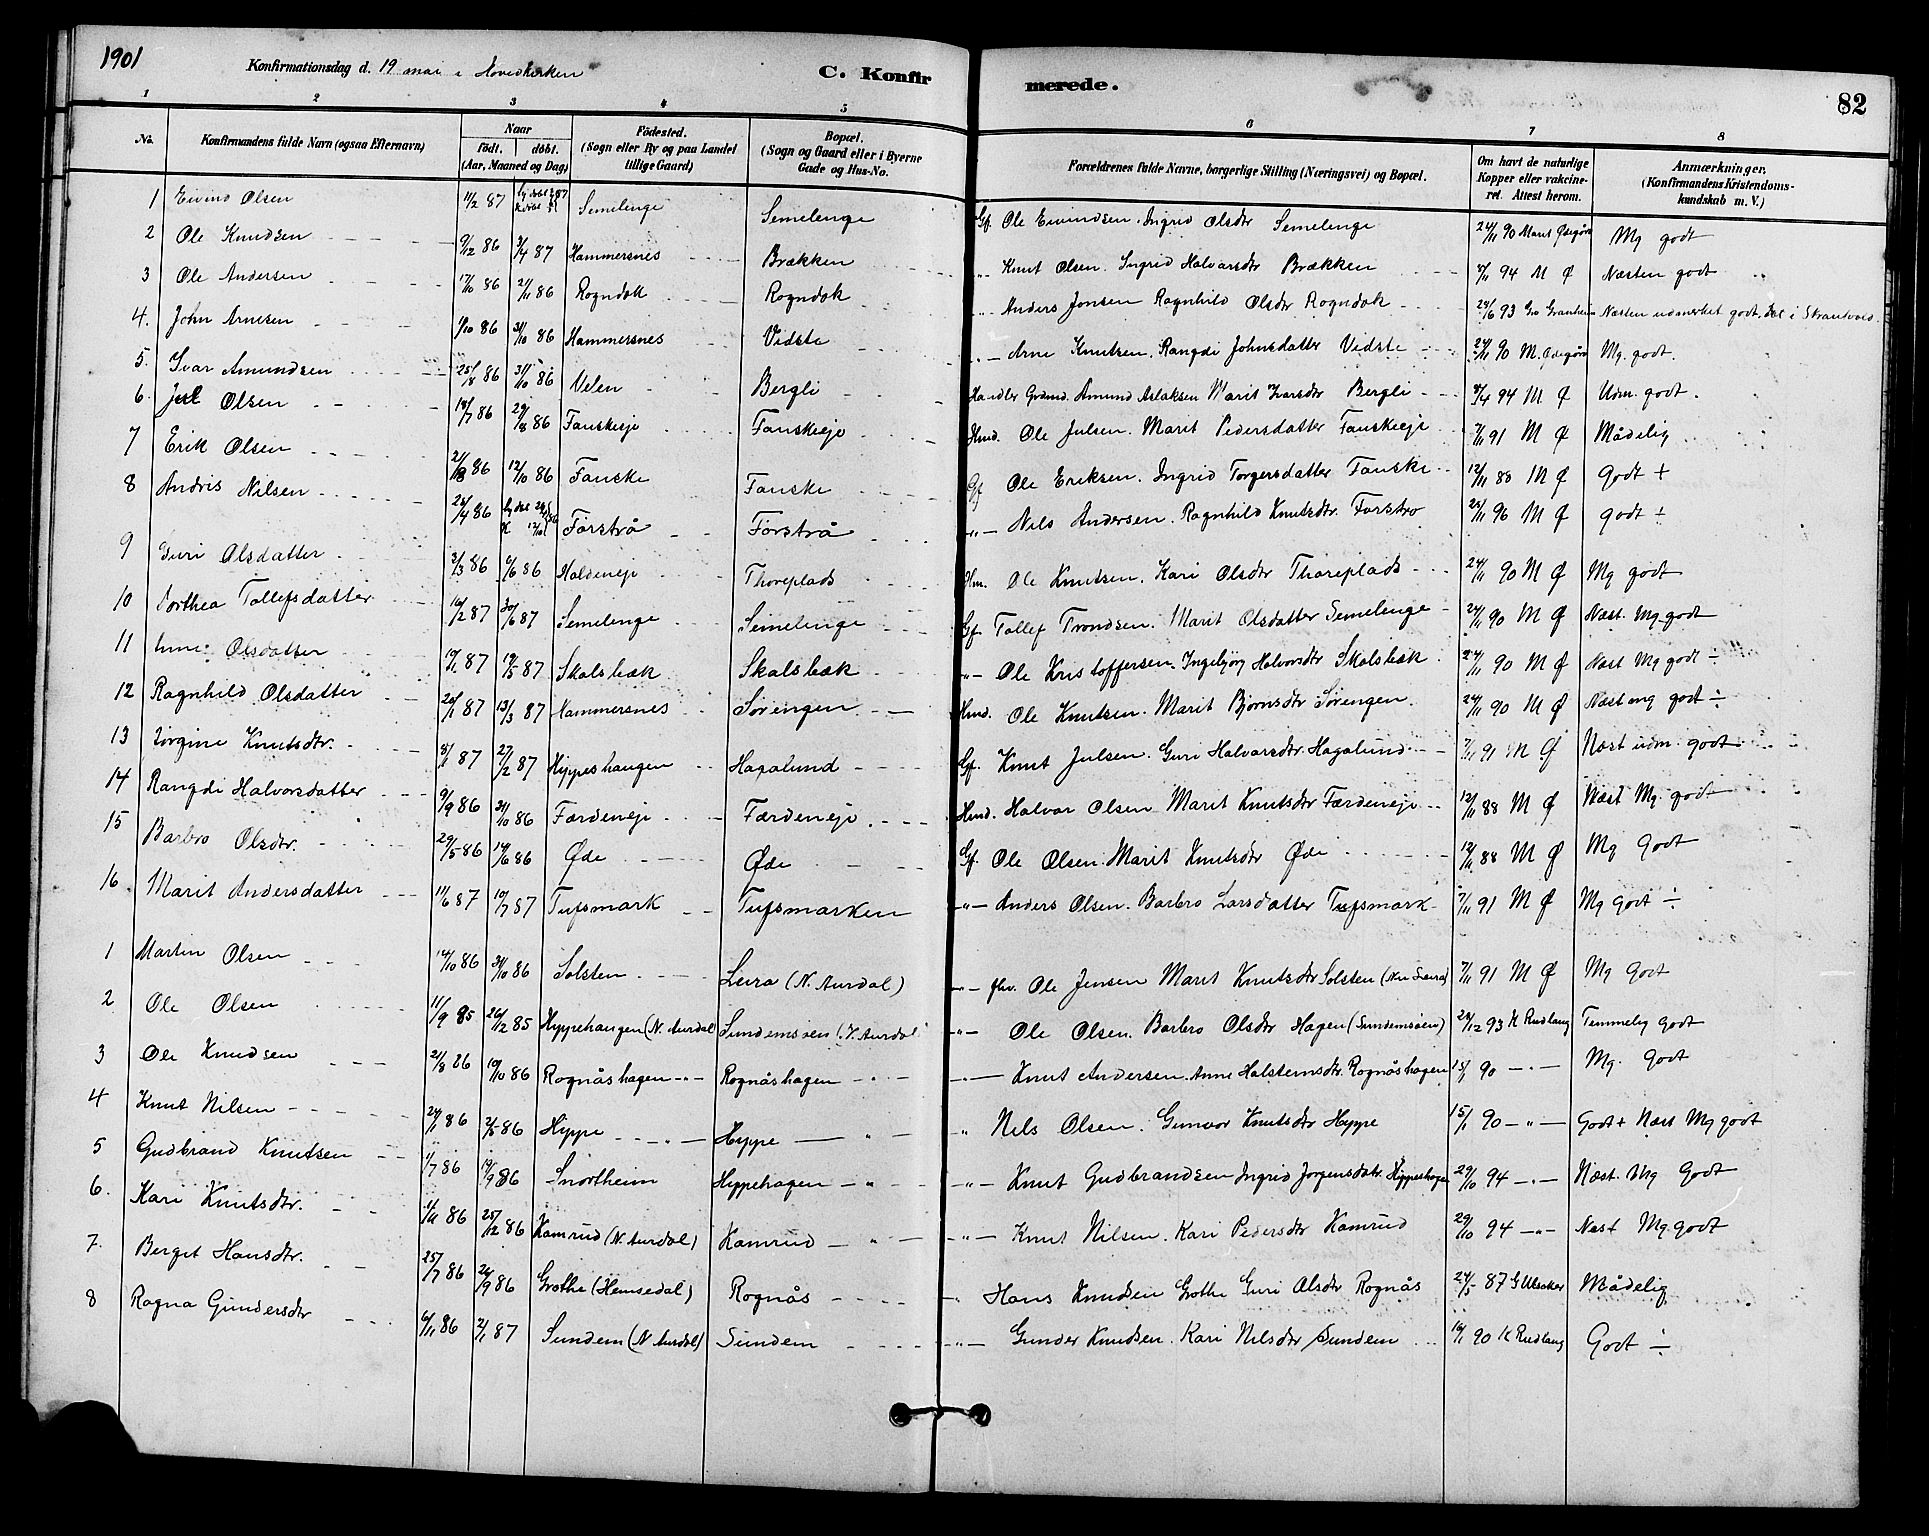 1901
Konfirmationsdag d. 19 mai i Hovedkirken
C. Konfirmerede.
82
1 2 3 4 5 6 7 8
No.
Konfirmandens fulde Navn (ogsaa Efternavn)
Naar
födt. döbt.
(Aar, Maaned og Dag)
Födested.
(Sogn eller By og paa Landet tillige Gaard)
Bopæl.
(Sogn og Gaard eller i Byerne Gade og Hus-No.
Forældrenes fulde Navne, borgerlige Stilling (Næringsvei) og Bopæl.
Om havt de naturlige Kopper eller vakcineret. Attest herom.
Anmærkninger.
(Konfirmandens Kristendomskundskab m. V.)
1 Eivind Olsen 11/2 87 Semelenge Semelenge Gf. Ole Eivindsen. Ingrid Olsdtr Semelenge 24/11 90 Marit Ødegård Mg godt
2 Ole Knudsen 9/12 86 3/4 87 Hammersnes Brækken "- Knut Olsen. Ingrid Halvarsdtr Brækken 94 M Ø Næsten godt
3 Ole Andersen 17/10 86 21/11 86 Rogndok Rogndok "- Anders Jonsen Ragnhild Olsdtr Rogndok 24/6 93 Gro Granheim Næsten udmærket godt. i Skrautvol
4. John Arnesen 1/10 86 31/10 86 Hammersnes Vidste "- Arne Knutsen. Rangdi Johnsdatter Vidste 24/11 90 M. Ødegård Mg. godt.
5. Ivar Amundsen 25/8 86 31/10 86 Velen Bergli Handler Grdmd. Amund Aslaksen Marit Ivarsdtr Bergli 4/4 94 M Ø Udm. godt.
6. Jul Olsen 18/7 86 29/8 86 Fanskeeje Fanskeeje Hmd. Ole Julsen. Marit Pedersdatter Fanskeeje 7/11 91 M Ø Mådelig
7 Erik Olsen 21/8 86 12/10 86 Fanske Fanske Gf Ole Eriksen. Ingrid Torgersdatter Fanske 12/11 88 M Ø Godt +
8 Andris Nilsen 28/4 86 Förstrå Förstrå "- Nils Andersen. Ragnhild Knutsdtr. Forstro 25/11 96 M Ø godt ÷
9 Guri Olsdatter 3/3 86 6/6 86 Haldeneje Thoreplads Hm. Ole Knutsen. Kari Olsdtr Thoreplads 24/11 90 M Ø Mg godt
10 Dorthea Tollefsdatter 16/2 87 30/6 87 Semelenge Semelenge Gf. Tollef Trondsen. Marit Olsdatter Semelenge 24/11 90 M Ø Næst. Mg. godt
11 Anne Olsdatter 19/1 87 19/5 87 Skalsbæk Skalsbæk "- Ole Kristoffersen. Ingebjorg Halvorsdtr Skalsbæk. 24/11 90 M Ø Næst Mg godt ÷
12 Ragnhild Olsdatter 20/1 87 13/3 87 Hammersnes Sörengen Hmd. Ole Knutsen. Marit Bjornsdtr Sörengen. 24/11 90 M Ø Næst mg godt ÷
13 Jörgine Knutsdtr. 8/1 87 27/2 87 Hippeshaugen Hagalund Gf. Knut Julsen. Guri Halvarsdtr. Hagalund 7/11 91 M Ø Næst udm. godt
14 Rangdi Halvorsdatter 9/9 86 31/10 86 Færdeneje Færdeneje Hmd. Halvar Olsen Marit Knutsdtr Færdeneje 12/11 88 M Ø Næst Mg. godt
15 Barbro Olsdtr. 29/5 86 14/6 86 Øde Øde Gf. Ole Olsen. Marit Knutsdtr Øde 12/11 88 M Ø Mg Godt
16. Marit Andersdatter 11/6 87 10/7 87 Tufsmark Tufsmarken "- Anders Olsen. Barbro Larsdatter Tufsmark 7/11 91 M Ø Mg Godt ÷
1 Martin Olsen 14/10 86 31/10 86 Solsten Leira (N. Aurdal) "- fhv. Ole Jensen Marit Knutsdtr Solsten (Nu Leira) 7/11 91 M Ø Mg Godt
2 Ole Olsen 11/9 85 26/12 85 Hyppehaugen (N. Aurdal) Sundemsöen (N. Aurdal "- Ole Olsen. Barbro Olsdtr Hagen (Sundemsöen) 28/12 93 K Rudlang Temmelig Godt
3 Ole Knudsen 21/8 86 10/10 86 Rognåshagen "- Rognåshagen "- Knut Andersen. Anne Halstensdtr. Rognåshagen 15/1 90 -"- Mg. Godt
4 Knut Nilsen 24/1 86 2/5 86 Hyppe "- Hyppe " " Nils Olsen. Gunvor Knutsdtr Hyppe 15/1 90 -"- Godt + Næst Mg godt
5 Gudbrand Knutsen 1/7 86 19/9 86 Snortheim Hippehagen " "- Knut Gudbrandsen Ingrid Jorgensdatr. Hippeshagen 29/10 94 -"- Næst. Mg Godt
6. Kari Knutsdtr. 11/11 86 25/12 86 Kamrud (N. Aurdal) Kamrud " "- Knut Nilsen. Kari Pedersdtr Kamrud 29/10 94 -"- Næst Mg. godt
7. Berget Hansdtr. 25/7 86 26/9 86 Gröthe (Hemsedal) Rognås " Hans Knudsen Gröthe Guri Olsdtr Rognås 24/5 87 G Ulsaker Mådelig
8 Ragna Gundersdtr 6/11 86 2/1 87 Sundem (N Aurdal) Sundem "- Gunder Knudsen. Kari Nilsdtr Sundem 16/1 90 K Rudlang Godt ÷